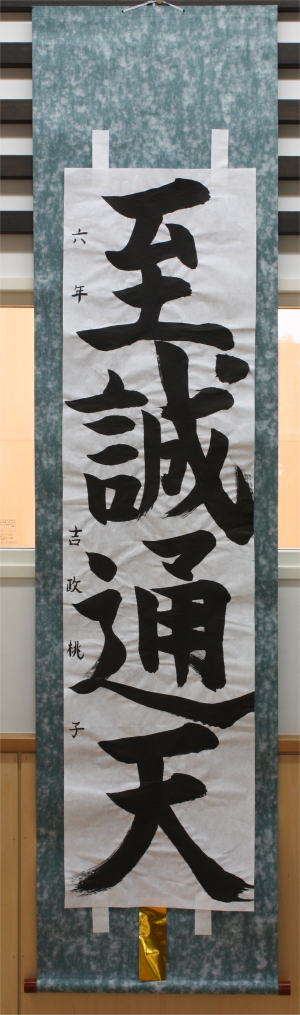 至誠通天
六年 吉政桃子